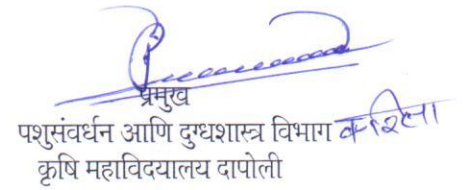 प्रमुख
पशुसंवर्धन आणि दुग्धशास्त्र विभाग करिता
कृषि महाविदयालय दापोली